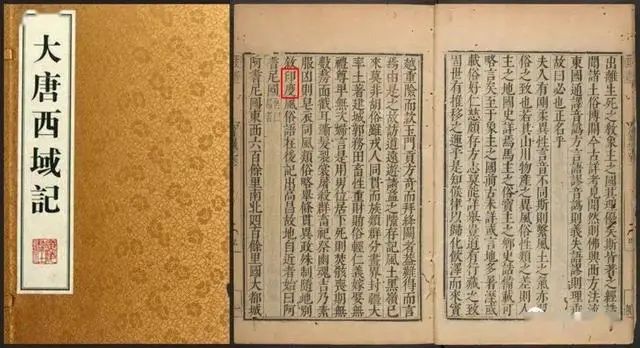 大唐西域記
出離生死之教象主之國其理優矣斯皆著之經誥
問諸土俗博關今古詳考見聞然則佛興西方法流
東國通譯音訛方言語謬音訛則義失語謬則理乖
故曰必也正名乎
夫人有剛柔異性言音不同斯則繫風土之氣亦習
俗之致也若其山川物產之異風俗性類之差則人
主之地國史詳焉馬主之俗寶主之鄉史誥備載可
略言矣至於象主之國前古未詳或書地多暑溼或
載俗好仁慈頗存方志莫能詳舉豈道有行藏之致
固世有推移之運乎是知候律以歸化飲澤而來賓
越重險而款玉門貢方奇而拜絳闕者蓋難得而言
焉由是之故訪道遠遊請益之隙存記風土黑嶺已
來莫非胡俗雖戎人同貫而族類群分畫界封疆大
率土著建城郭務田畜性重財賄俗輕仁義嫁娶無
禮尊卑無次婦言是用男位居下死則焚骸喪期無
數剺面截耳斷髮裂裳屠殺群畜祀祭幽魂吉乃素
服凶則皂衣同風類俗略舉條貫異政殊制隨地別
敘印度風俗語在後記出高昌故地自近者始曰阿
耆尼國
阿耆尼國東西六百餘里南北四百餘里國大都城